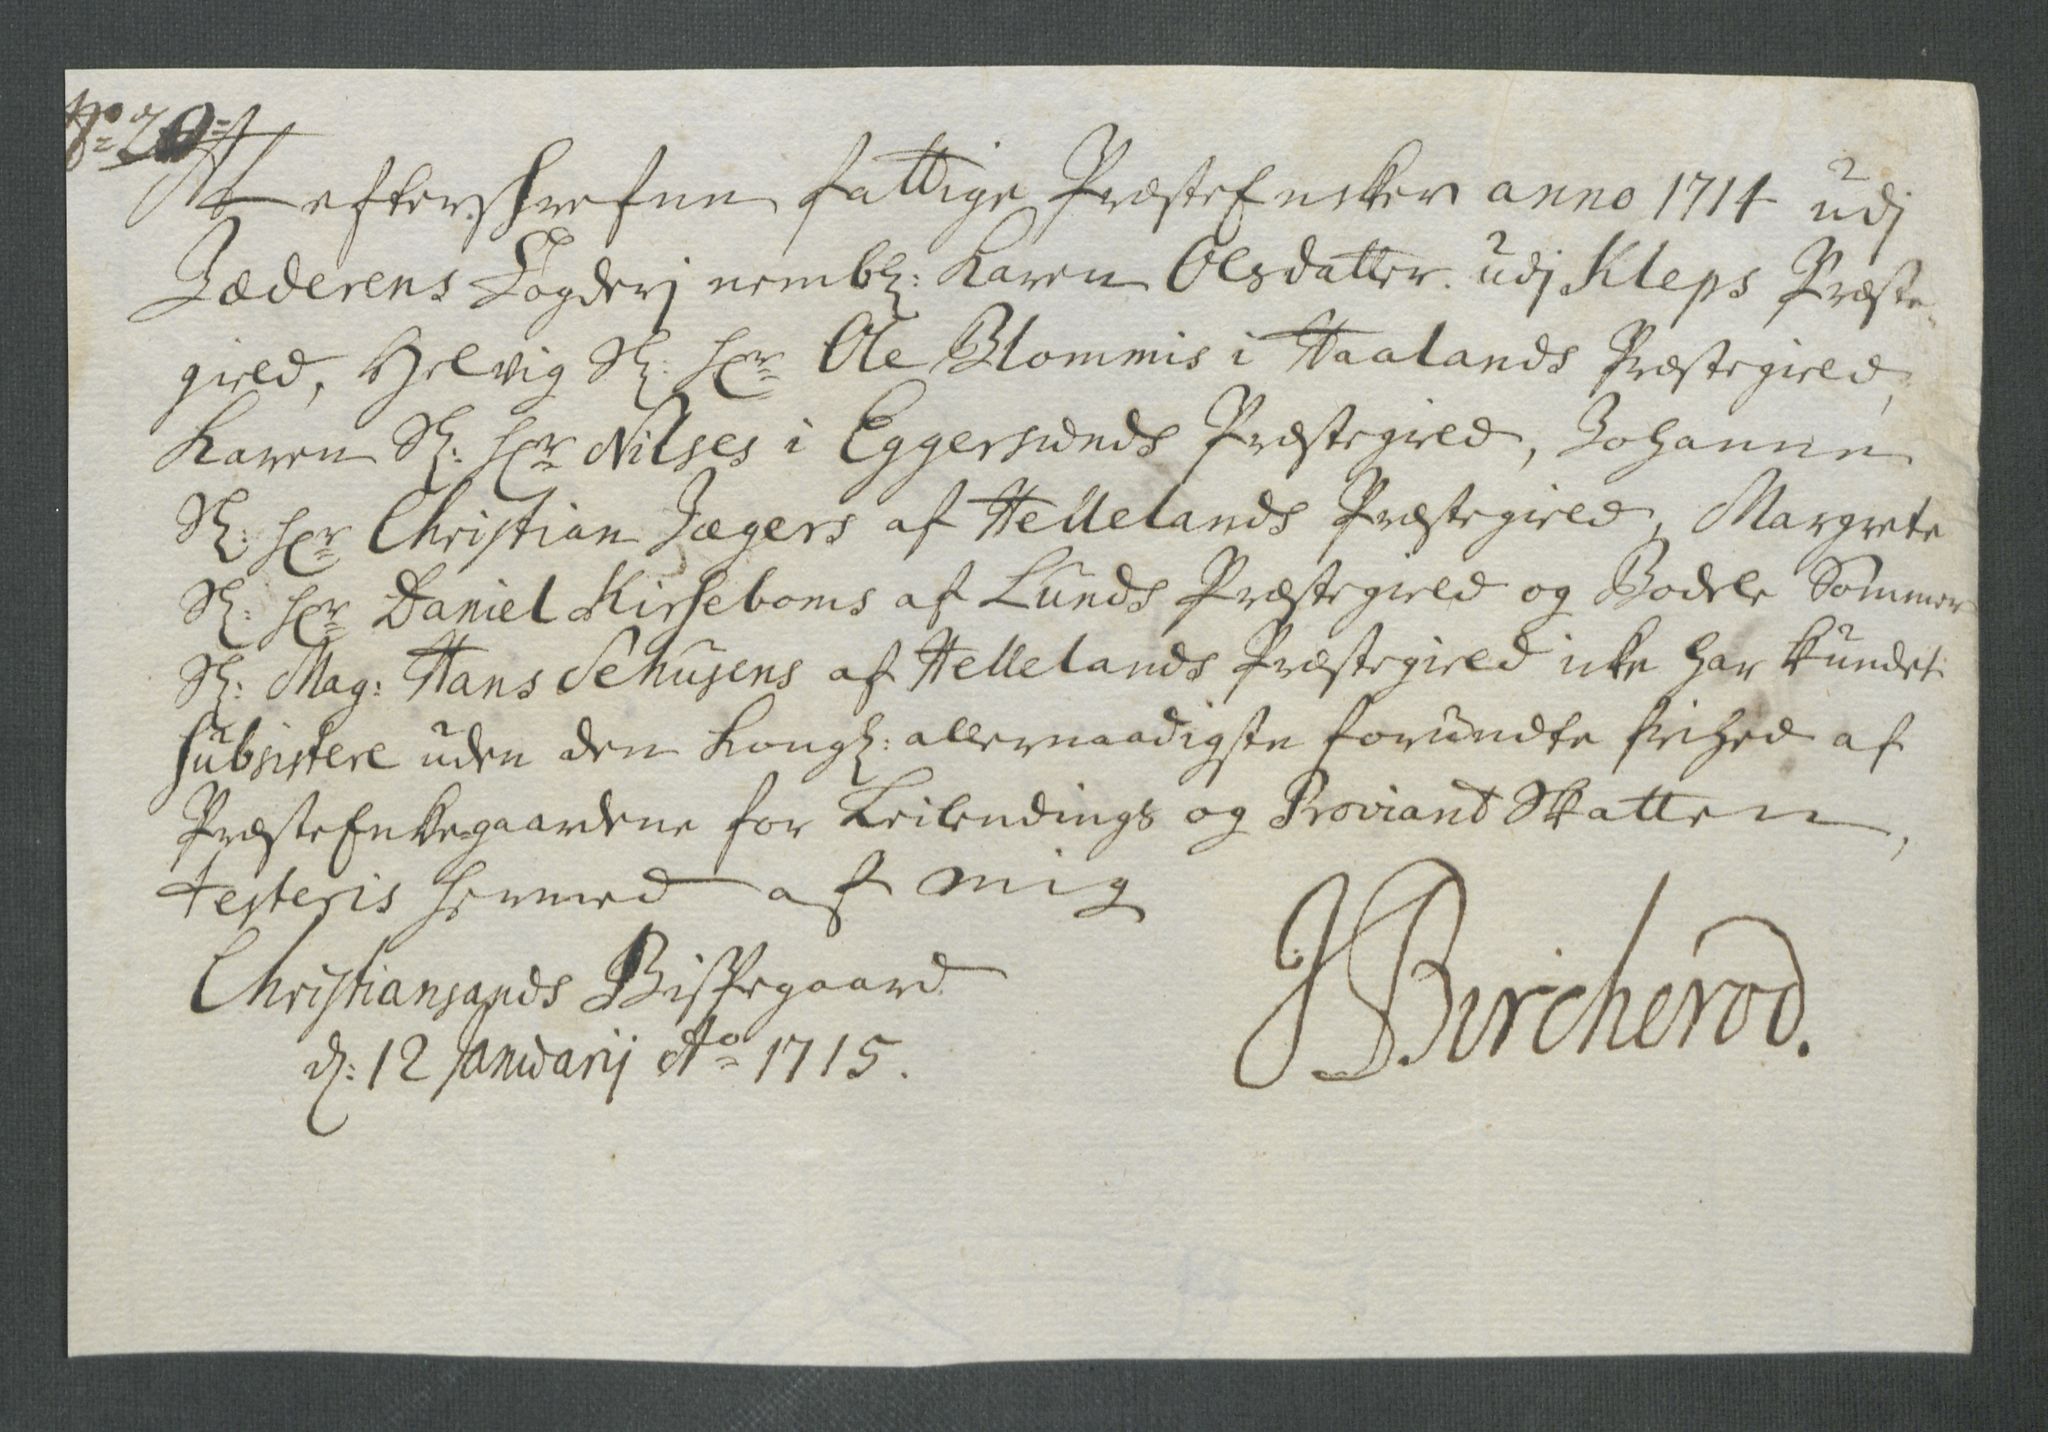 No 20
At efterskrefne fattige PræsteEncker anno 1714 udj
Jæderens Fogderj nembl: Karen Olsdatter udj Kleps Præste-
gield, Helvig Sl: Hr Ole Blommis i Haalands Præstegield,
Karen Sl: Hr Nilses i Eggersunds Præstegield, Johanne
Sl: Hr Christian Jægers af Hellelands Præstegield, Margrete
Sl: Hr Daniel Kirseboms af Lunds Præstegield og Bodele Sommer
Sl: Mag: Hans Schusens af Hellelands Præstegield icke har kundet
subsistere uden den Kongl: allernaadigste forundte frihed af
PræsteEnkegaardene for Leilendings og Proviant Skatten,
testeris hermed af mig
Christiansands Bispegaard
d: 12 Januarij Ao 1715.
JBircherod.